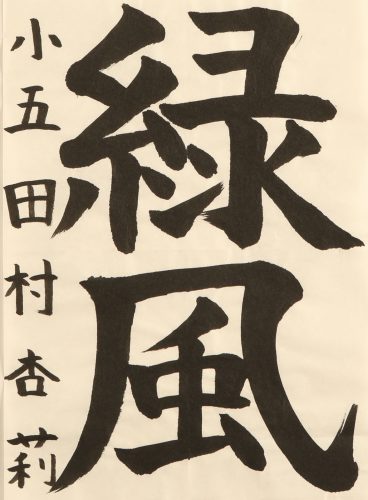 緑風
小五 田村杏莉